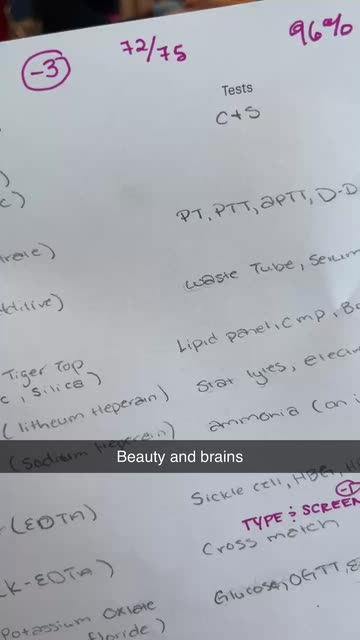 -3 72/75 96%
Tests
C+S
PT, PTT, aPTT, D-D
Waste Tube, Serum
Lipid panel, CMP, B
Tiger Top
, Silica)
Stat lytes, elect
(litheum Heperain)
ammonia (on i
(Sodium Heperein)
Beauty and brains
Sickle cell, HBG, H
-1
(EDTA)
TYPE & SCREEN
Cross match
K-EDTA)
Glucose, OGTT,
Potassium Oxlate
Floride)